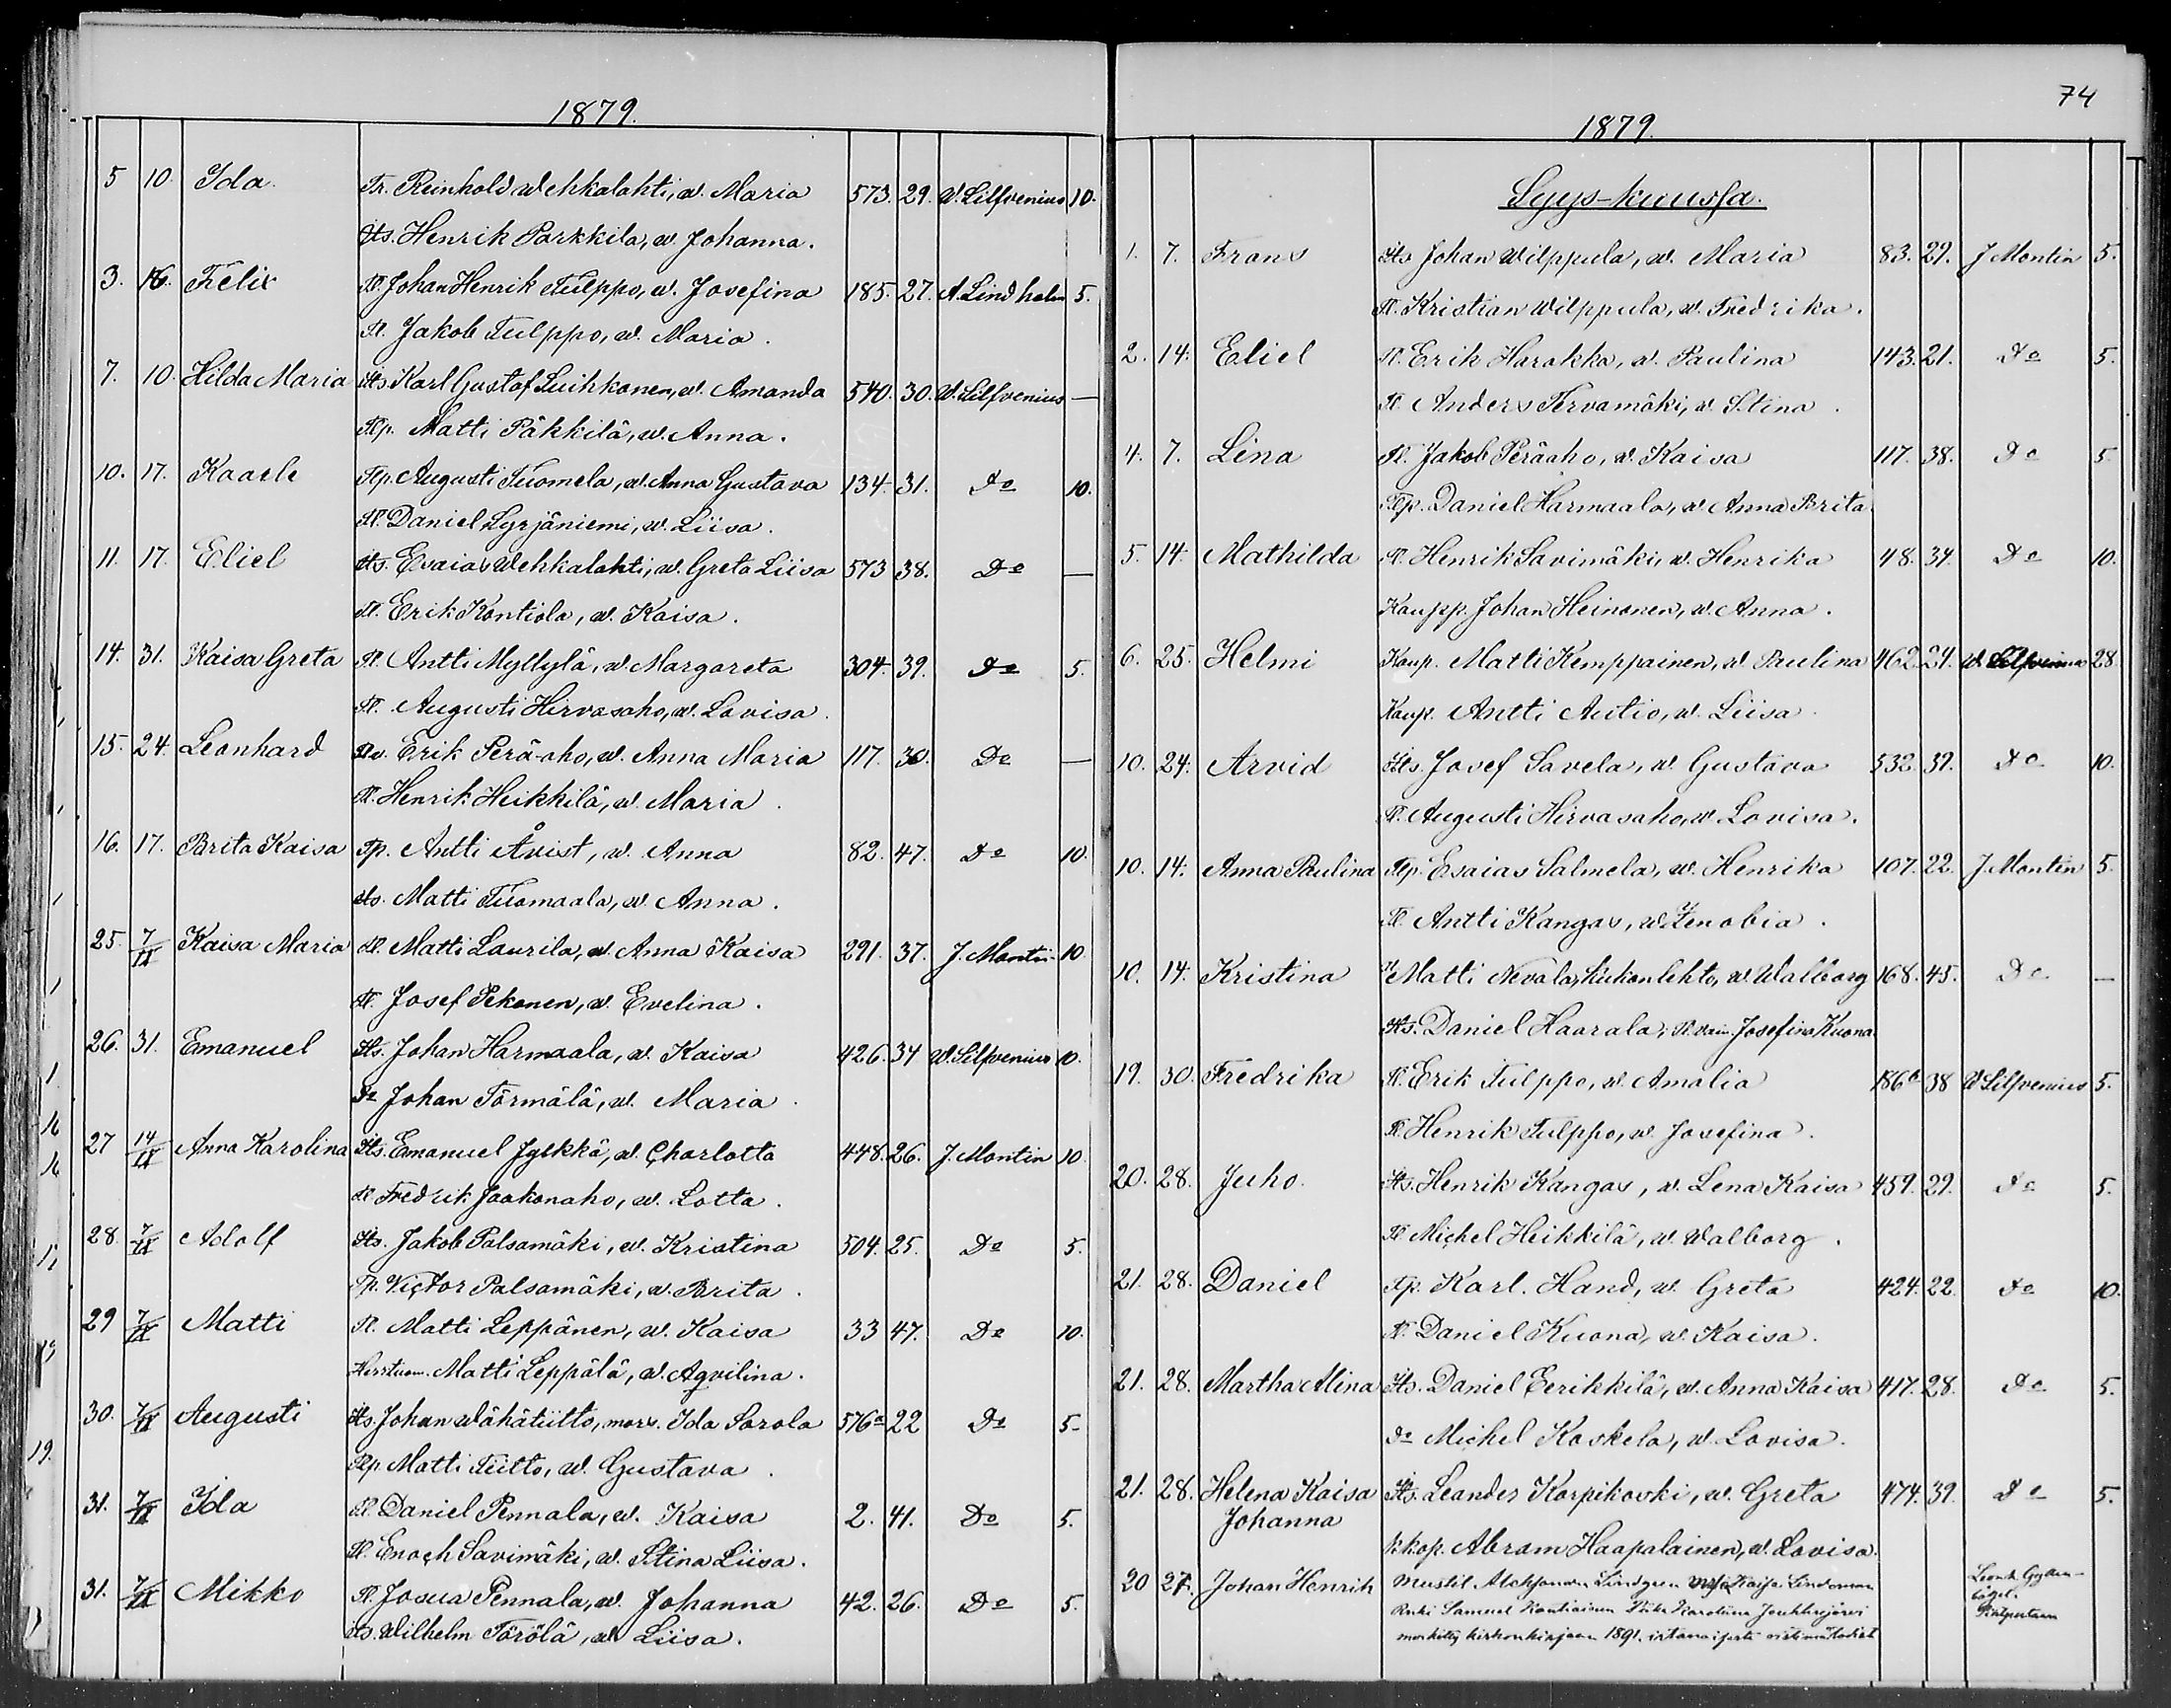 1879.
5 10. Ida. Tr. Reinhold Wehkalahti, w. Maria 573. 29. W. Silfvenius 10.
Its. Henrik Parkkila, w. Johanna.
3. 16. Felix Tl. Johan Henrik Tulppo, w. Josefina 185. 27. A. Lindholm 5.
Tl. Jakob Tulppo, w. Maria.
7. 10. Hilda Maria Its Karl Gustaf Luihkonen, w. Amanda 540. 30. W. Silfvenius —
Tlp. Matti Päkkilä, w. Anna.
10. 17. Kaarle Tlp. Augusti Tuomela, w. Anna Gustava 134. 31. Do 10.
Tl. Daniel Syrjäniemi, w. Liisa.
11. 17. Eliel Its. Esaias Wehkalahti, w. Greta Liisa 573 38. Do —
Tl. Erik Kontiola, w. Kaisa.
14. 31. Kaisa Greta Tl. Antti Myllylä, w. Margareta 304. 39. Do 5.
Tl. Augusti Hirvasaho, w. Lovisa.
15. 24. Leonhard Erik Perä-aho, w. Anna Maria 117. 30. Do —
Tl. Henrik Heikkilä, w. Maria.
16. 17. Brita Kaisa Tp. Antti Åvist, w. Anna 82. 47. Do 10.
Its. Matti Tuomaala, w. Anna.
25. 7/IX Kaisa Maria Tl. Matti Laurila, w. Anna Kaisa 291. 37. J. Montin 10
Tl. Josef Pekonen, w. Evelina.
26. 31. Emanuel Its. Johan Harmaala, w. Kaisa 426. 34 W. Silfvenius 10.
Do Johan Törmälä, w. Maria.
27 14/IX Anna Karolina Its. Emanuel Jylkkä, w. Charlotta 448. 26. J. Montin 10
Tl Fredrik Jaakonaho, w. Lotta.
28. 7/IX Adolf Its. Jakob Palsamäki, w. Kristina 504. 25. Do 5.
Tp. Victor Palsamäki, w. Brita.
29 7/IX Matti Tl. Matti Leppänen, w. Kaisa 33 47. Do 10.
Matti Leppälä, w. Aqvilina.
30. 7/IX Augusti Its. Johan Wähätiitto, mors. Ida Sarola 576a 22 Do 5.
Tlp. Matti Tiitto, w. Gustava.
31. 7/IX Ida Tl. Daniel Pennala, w. Kaisa 2. 41. Do 5.
Tl. Enoch Savimäki, w. Stina Liisa.
31. 7/IX Mikko Tl. Josua Pennala, w. Johanna 42. 26. Do 5.
Its. Wilhelm Törölä, w Liisa.
74
1879.
Syys-kuussa.
1. 7. Frans Its Johan Wilppula, w. Maria 83. 29. J Montin 5.
Tl. Kristian Wilppula, w. Fredrika.
2. 14. Eliel Tl. Erik Harakka, w. Paulina 143. 21. Do 5.
Tl. Anders Tervamäki, w. Stina.
4. 7. Lina Tl. Jakob Peräaho, w. Kaisa 117. 38. Do 5.
Tlp. Daniel Harmaala, w Anna Brita
5. 14. Mathilda Tl. Henrik Savimäki, w. Henrika 48. 34. Do 10.
Kaupp. Johan Heinonen, w. Anna.
6. 25. Helmi Kaup. Matti Kemppainen, w. Paulina 462. 24. W. Silfvenius 28
Kaup. Antti Autio, w. Liisa
10. 24. Arvid Its. Josef Savela, w. Gustava 532. 39. Do 10.
Tl. Augusti Hirvasaho, w. Lovisa.
10. 14. Anna Paulina Tlp. Esaias Salmela, w. Henrika 107. 22. J. Montin 5.
Tl. Antti Kangas, w. Zenobia.
10. 14. Kristina Matti Nevala, Kukonlehto, w. Walborg 168. 45. Do —
Its. Daniel Haarala, Josefina Kuona
19. 30. Fredrika Tl. Erik Tulppo, w. Amalia 186a 38 W Silfvenius 5.
Tl. Henrik Tulppo, w. Josefina.
20. 28. Juho. Its. Henrik Kangas, w. Lena Kaisa 459. 29. Do 5.
Tl. Michel Heikkilä, w. Walborg.
21. 28. Daniel Tp. Karl. Hand, w. Greta 424. 22. Do 10.
Tl. Daniel Kuona, w. Kaisa.
21. 28. Martha Alina Its. Daniel Eerikkilä, w. Anna Kaisa 417. 28. Do 5.
Do Michel Koskela, w. Lovisa.
21. 28. Helena Kaisa Its. Leander Karpikoski, w. Greta 474. 39. Do 5.
Johanna
Kkop. Abram Haapalainen, w. Lovisa.
20 27. Johan Henrik Mustil. Lindgren Kaisa Lindeman
Renki Samuel Piika Karolina
kirkonkirjaan 1891.